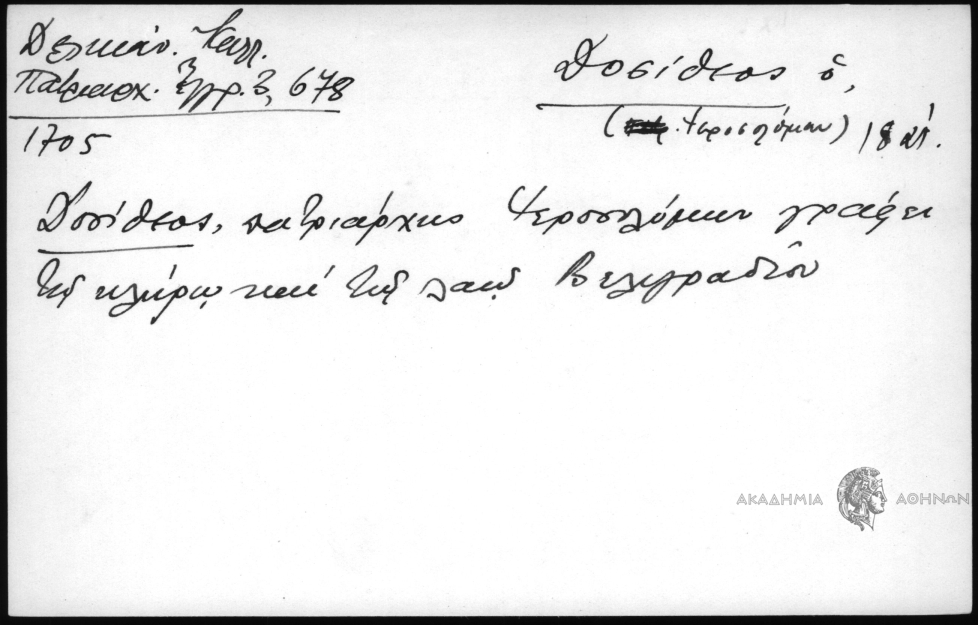 Δελικάν. Καλλ.
Πατριαρχ. Ἔγγρ. 3, 678
1705
Δοσίθεος ὁ,
( Ἱεροσολύμων) 18 αἰ.
Δοσίθεος, πατριάρχης Ἱεροσολύμων γράφει
τῷ κλήρῳ καί τῷ λαῷ Βελιγραδίου
ΑΚΑΔΗΜΙΑ ΑΘΗΝΩΝ